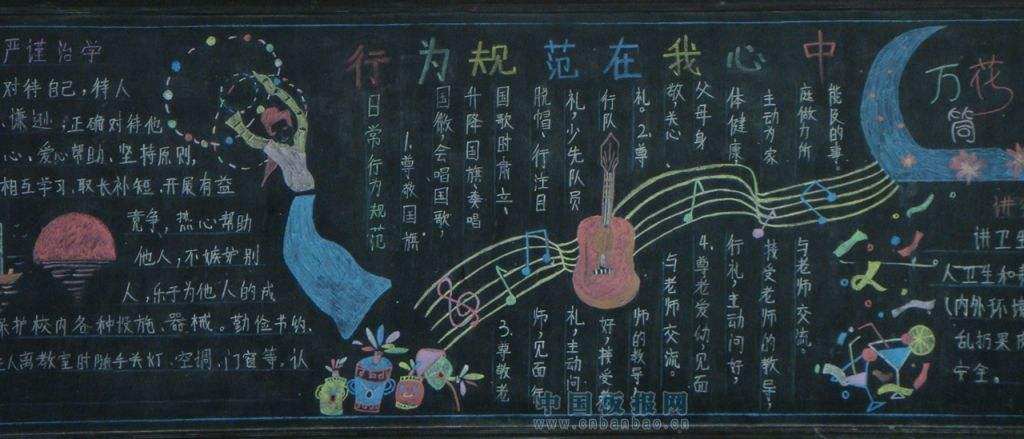 严谨治学
对待自己,待人
谦逊;正确对待他
心,爱心帮助、坚持原则,
相互学习、取长补短、开展有益
竞争,热心帮助
他人,不嫉妒别
人,乐于为他人的成
保护校内各种设施、器械。勤俭节约、
人离教室时随手关灯、空调、门窗等。认
行为规范在我心中
日常行为规范
1.尊敬国旗、
国徽,会唱国歌,
升降国旗、奏唱
国歌时肃立、
脱帽、行注目
礼,少先队员
行队
礼。2.尊
敬、关心
父母身
体健康
主动为家
庭做力所
能及的事。
3.尊敬老
师,见面行
礼,主动问
好,接受老
师的教导,
与老师交流。
4.尊老爱幼,见面
行礼,主动问好,
接受老师的教导,
与老师交流。
万花
筒
讲
讲卫生
人卫生和
(内外环境
乱扔果
安全。
中国板报网
www.cnbanbao.cn